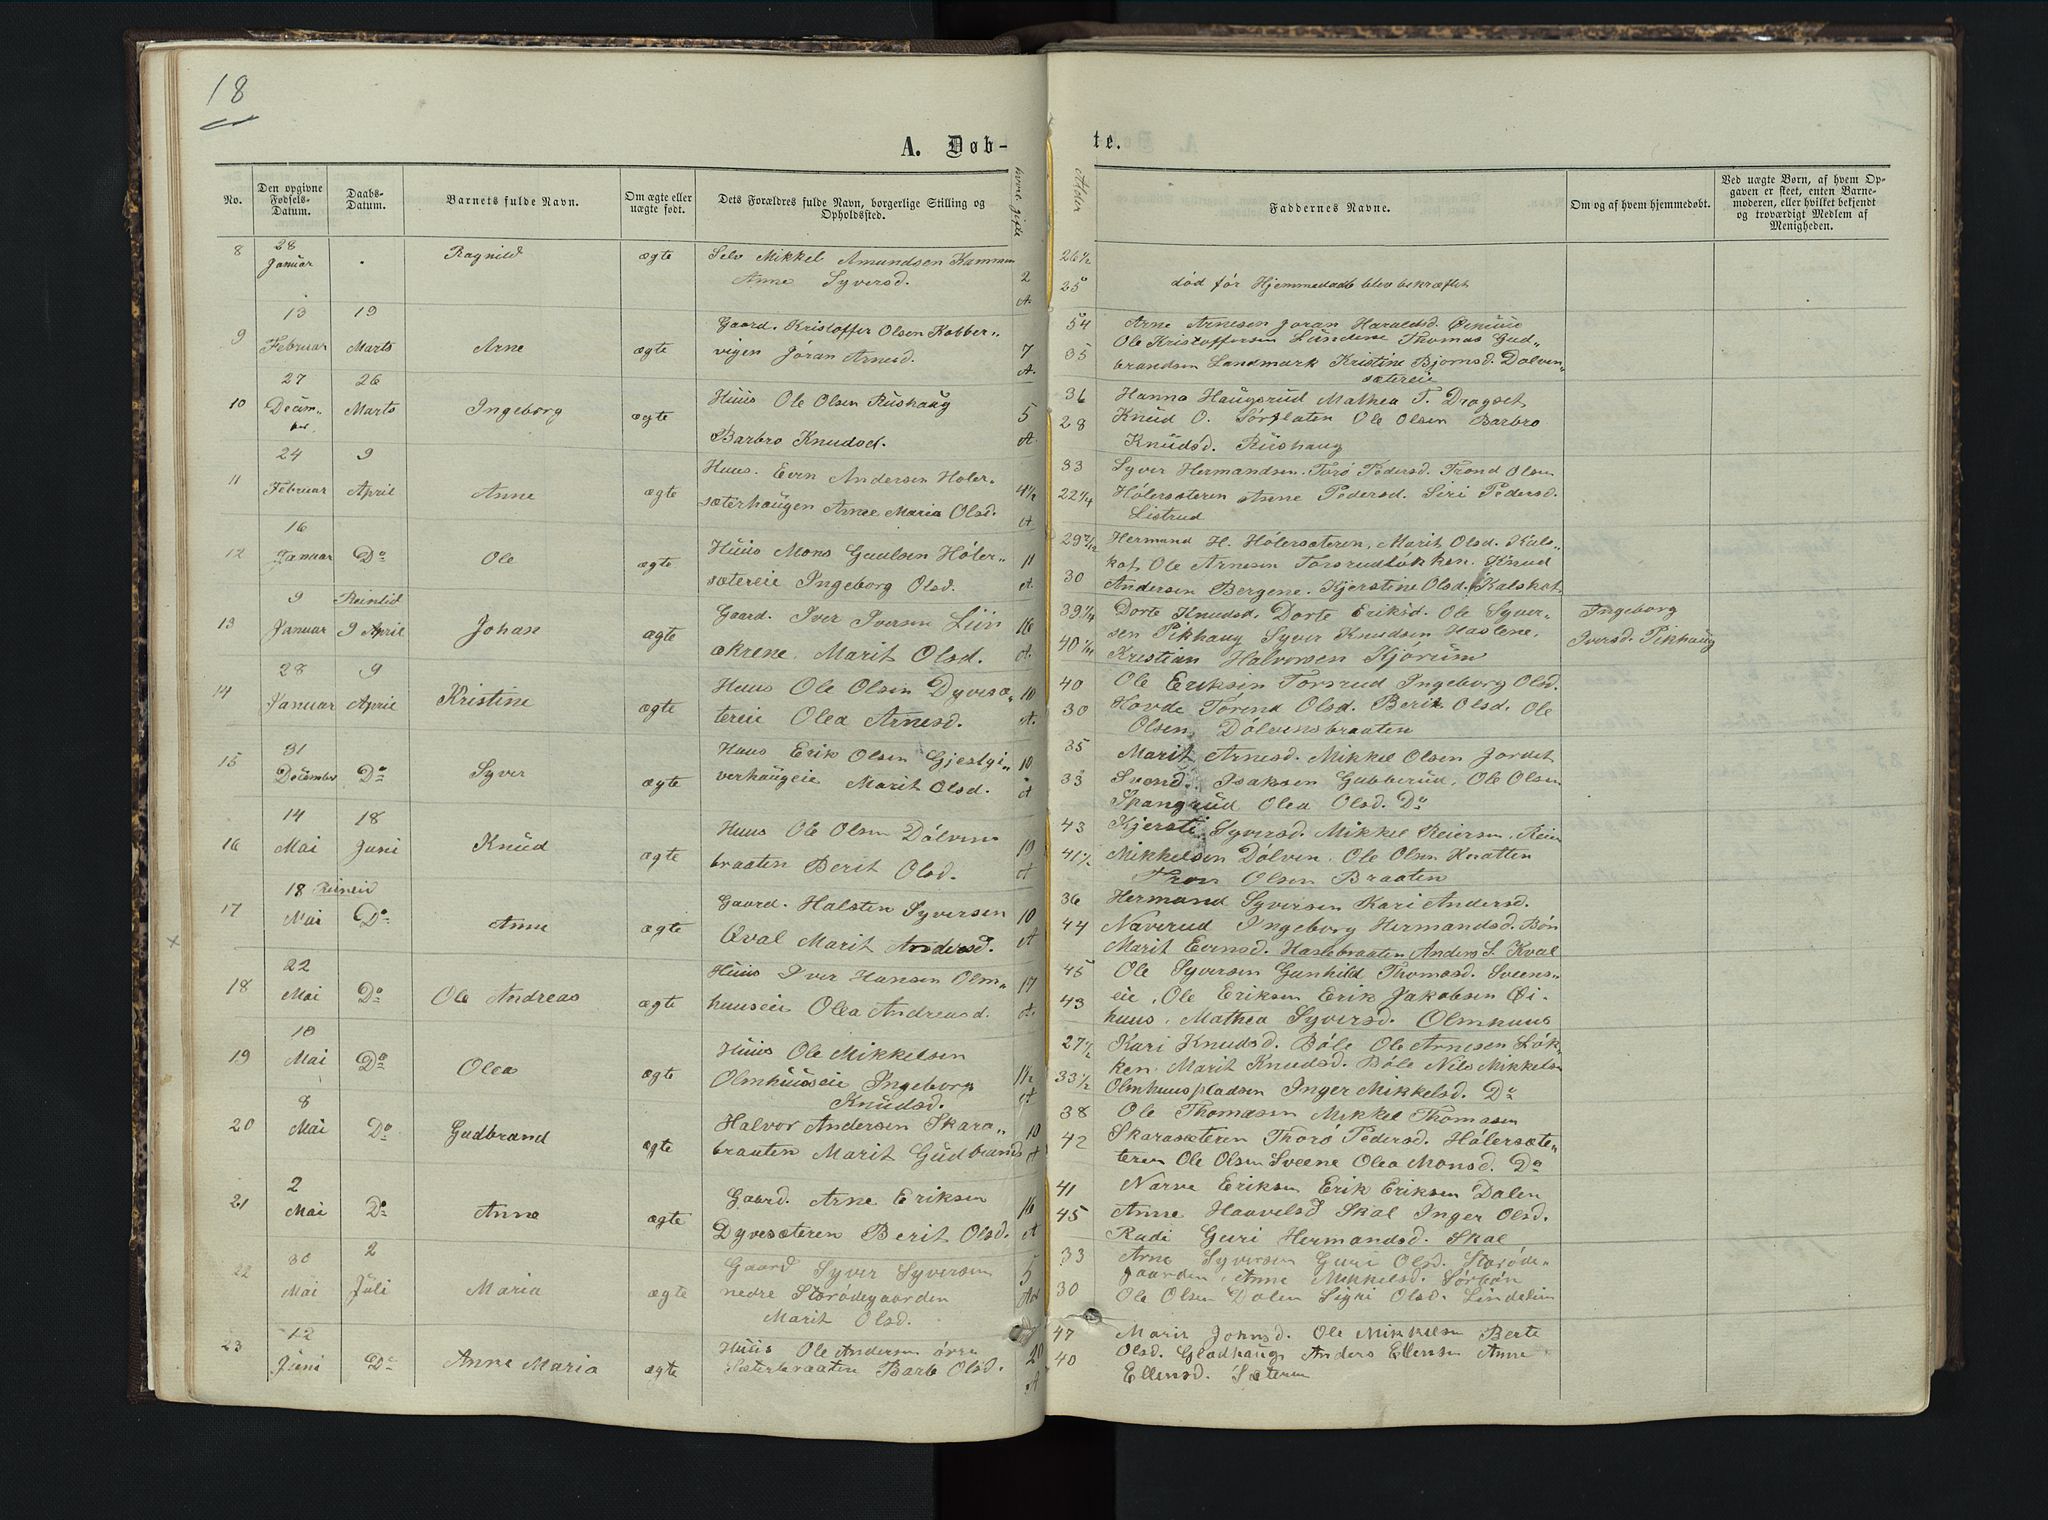 18
A. Døb-
te.
No.
Den opgivne Fødsels-Datum.
Daabs-Datum.
Barnets fulde Navn.
Om ægte eller uægte født.
Dets Forældres fulde Navn, borgerlige Stilling og Opholdssted.
hvore gifte
Alder
Faddernes Navne.
Om og af hvem hjemmedøbt.
Ved uægte Børn, af hvem Op-
gaven er skeet, enten Barne-
moderen, eller hvilket bekjendt
og troværdigt Medlem af
Menigheden.
8 28 Januar Ragnild ægte
Selv Mikkel Amundsen Kammen 2 26½
Anne Syversd. A. 25
død før Hjemmedaab blev bekræftet
9 13 Februar 19 Marts Arne ægte
Gaard. Kristoffer Olsen Kobber- 7 54
vigen Jóran Arnesd. A. 35
Arne Arnesen Joran Haraldsd.
Ole Kristoffersen Lundene Thomas Gud-
brandsen Landmark Kristine Bjornsd. Dolven-
sætereie
10 27 Decem-ber. 26 Marts Ingeborg ægte
Huus Ole Olsen Rushaug 5 36
Barbro Knudsd. A. 28
Hanna Haugsrud Mathea T. Dragset
Knud O. Sørflaten Ole Olsen Barbro
Knudsd. Rushaug
11 24 Februar 9 April Anne ægte
Huus. Even Andersen Holer- 4½ 33
sæterhaugen Anne Maria Olsd. A 22¼
Syver Hermandsen. Toró Pedersd. Trond Olsen
Hólersæteren Anne Pedersd. Siri Pedersd.
Listrud
12 16 Januar Do Ole ægte
Huus Mons Gaulsen Hóler- 11 29 7/12
sætereie Ingeborg Olsd. A. 30
Hermand H. Hólersæteren, Marit Olsd. Kals-
kot Ole Arnesen Torsrudløkken. Knud
Andersen Bergene. Kjerstine Olsd. Kalskot
13 9 Januar Reinlid 9 April Johan ægte
Gaard. Iver Iversen Liin 16
ækrene. Marit Olsd. A.
Dorte Knudsd. Dorte Eriksd. Ole Syver-
sen Pikhaug Syver Knudsen Haslene.
Kristian Halvorsen Kjörum
Ingeborg
Iversd. Pikhaug
14 28 Januar 9 April Kristine ægte
Huus Ole Olsen Dyvesæ- 10 40
tereie Olea Arnesd. A. 30
Ole Eriksen Torsrud Ingeborg Olsd.
Hovde Tórend Olsd. Berit Olsd. Ole
Olsen Dólvensbraaten
15 31 December Do Syver ægte
Huus Erik Olsen Gjestgi- 10 35
verhaugeie Marit Olsd. A 33
Marit Arnesd. Mikkel Olsen Jordet
Svend. Isaksen Gubberud, Ole Olsen
Spangrud Olea Olsd. Do
16 14 Mai 18 Juni Knud ægte
Huus Ole Olsen Dólvens 19 43
braaten Berit Olsd. A 41½
Kjersti Syversd. Mikkel Reiersen. Reier
Mikkelsen Dólven. Ole Olsen Knatten
Tron Olsen Braaten
17 18 Reinlid Mai Do Anne ægte
Gaard. Halsten Syversen 10 36
Qval Marit Andersd. A 44
Hermand Syversen Kari Andersd.
Naverud Ingeborg Hermandsd. Bón
Marit Evensd. Haslebraaten Anders S. Kval
18 22 Mai Do Ole Andreas ægte
Huus Iver Hansen Olm- 17 45
huuseie Olea Andreasd. A. 43
Ole Syversen Gunhild Thomasd. Sveens-
eie, Ole Eriksen Erik Jakobsen Øi-
huus. Mathea Syversd. Olmhuus
19 10 Mai Do Olea ægte
Huus Ole Mikkelsen 27½
Olmhuuseie Ingeborg 1½ 33½
Knudsd. A
Kari Knudsd. Bóle Ole Arnesen Lók-
ken. Marit Knudsd. Bóle Nils Mikkelsen
Olmhuuspladsen Inger Mikkelsd. Do
20 8 Mai Do Gudbrand ægte
Halvor Andersen Skara- 10 38
braaten Marit Gudbrands A 42
Ole Thomasen Mikkel Thomasen
Skarasæteren Thoró Pedersd. Hólersæte-
teren Ole Olsen Sveene Olea Monsd. Do
21 2 Mai Do Anne ægte
Gaard. Arne Eriksen 16 41
Dyvesæteren Berit Olsd. A 45
Narve Eriksen Erik Eriksen Dalen
Anne Haavelsd Skal Inger Olsd.
Rudi Guri Hermandsd. Skal
22 30 Mai 2 Juli Maria ægte
Gaard Syver Syversen 5 33
nedre Storódegaarden A 30
Marit Olsd.
Arne Syversen Guri Olsd. Storøde-
gaarden, Anne Mikkelsd. Sórbón
Ole Olsen Dalen Sigri Olsd. Lindelien
23 12 Juni Do Anne Maria ægte
Huus Ole Andersen øvre 20 47
Sæterbraaten Barb Olsd. A 40
Marit Johnsd. Ole Mikkelsen Berte
Olsd. Gladhaug Anders Ellensen Anne
Ellensd. Sæteren